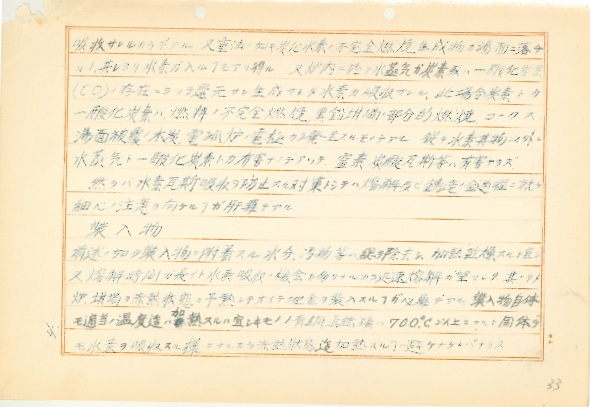 吸收サレルカラデアル 又重油ノ如キ炭化水素ノ不完全燃焼生成物カ湯面ニ落チ
ルト其レヨリ水素カ入ルコモアリ得ル 又炉内ニ於テ水蒸気カ炭素或ハ一酸化炭素
(CO)ノ存在ニヨリ還元サレ生成サレタ水素カ吸收サレル、此場合炭素トカ
一酸化炭素ハ、燃料ノ不完全燃焼、黒鉛坩堝ノ部分的燃焼、コークス、
湯面被覆ノ木炭、電弧炉ノ電極カラ発生スルモノデアル 従テ水素其物ノ外ニ
水蒸気ト一酸化炭素トカ有害ナノデアッテ、窒素 炭酸瓦斯等ハ有害ナラズ
然ラバ水素瓦斯吸收ヲ防止スル対策トシテハ熔解及ビ鋳造ノ全過程ニ於テ
細心ノ注意ヲ向ケルコガ肝要デアル
装入物
前述ノ如ク装入物ニ附着スル水分、汚物等ハ総テ除去シ、加熱乾燥スルヲ宜シ
又熔解時間カ長イト水素吸收ノ機会カ多クナルカラ迅速熔解カ望マシク、其ノタメ
炉、坩堝ヲ赤熱状態ニ予熱シテオイテ地金ヲ装入スルコガ必要デアル 装入物自体
モ適当ノ温度迄ハ加熱スルハ宜シキモ 700℃以上ニナルト固体デ
モ水素ヲ吸收スル様ニナルカラ赤熱状態迄加熱スルコハ避ケナケレバナラヌ
33